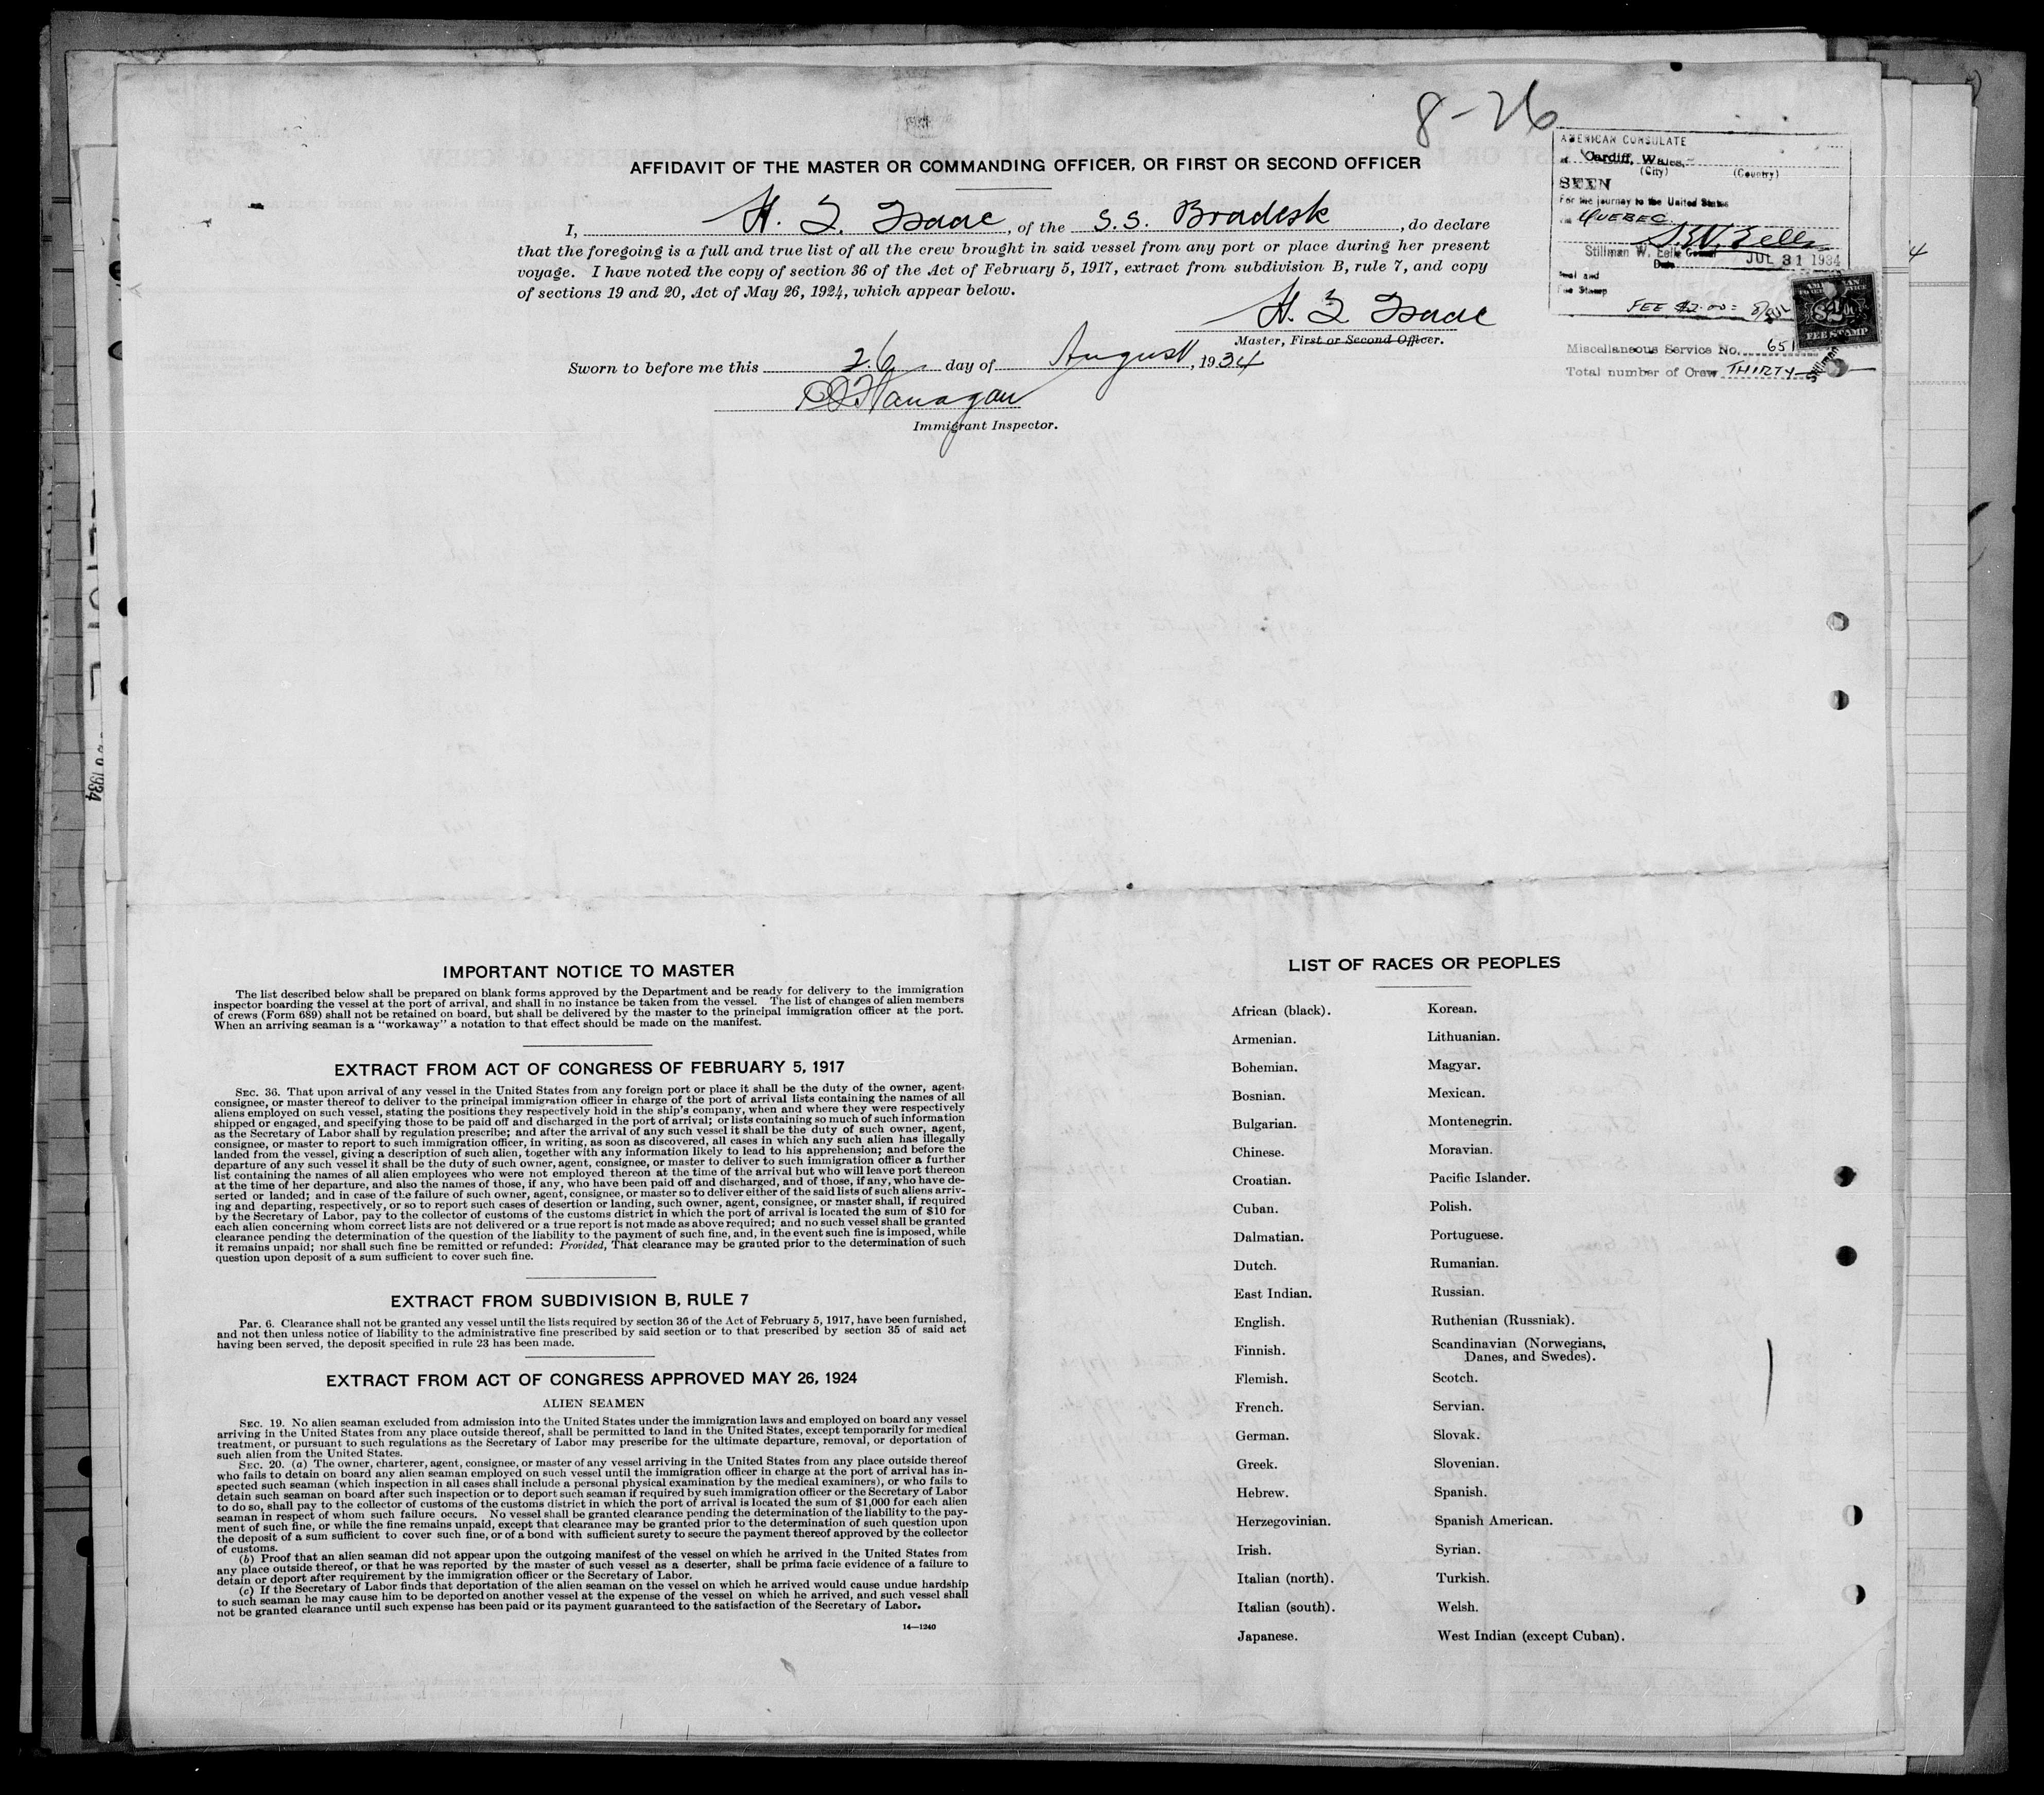 8-26
AMERICAN CONSULATE
at Cardiff, Wales,
(City) (Country)
SEEN
For the journey to the United States
via QUEBEC.
Stillman W. Eells Consul
Date JUL 31 1934
Seal and
Fee Stamp
FEE $2.00=
AMERICAN
FOREIGN SERVICE
$2.00
FEE STAMP
Miscellaneous Service No. 651
Total number of Crew THIRTY
AFFIDAVIT OF THE MASTER OR COMMANDING OFFICER, OR FIRST OR SECOND OFFICER
I, H. I. Isaac, of the S.S. Bradesk, do declare
that the foregoing is a full and true list of all the crew brought in said vessel from any port or place during her present
voyage. I have noted the copy of section 36 of the Act of February 5, 1917, extract from subdivision B, rule 7, and copy
of sections 19 and 20, Act of May 26, 1924, which appear below.
H. I. Isaac
Master, First or Second Officer.
Sworn to before me this 26 day of August, 1934
Flanagan
Immigrant Inspector.
IMPORTANT NOTICE TO MASTER
The list described below shall be prepared on blank forms approved by the Department and be ready for delivery to the immigration
inspector boarding the vessel at the port of arrival, and shall in no instance be taken from the vessel. The list of changes of alien members
of crews (Form 689) shall not be retained on board, but shall be delivered by the master to the principal immigration officer at the port.
When an arriving seaman is a "workaway" a notation to that effect should be made on the manifest.
EXTRACT FROM ACT OF CONGRESS OF FEBRUARY 5, 1917
SEC. 36. That upon arrival of any vessel in the United States from any foreign port or place it shall be the duty of the owner, agent,
consignee, or master thereof to deliver to the principal immigration officer in charge of the port of arrival lists containing the names of all
aliens employed on such vessel, stating the positions they respectively hold in the ship's company, when and where they were respectively
shipped or engaged, and specifying those to be paid off and discharged in the port of arrival; or lists containing so much of such information
as the Secretary of Labor shall by regulation prescribe; and after the arrival of any such vessel it shall be the duty of such owner, agent,
consignee, or master to report to such immigration officer, in writing, as soon as discovered, all cases in which any such alien has illegally
landed from the vessel, giving a description of such alien, together with any information likely to lead to his apprehension; and before the
departure of any such vessel it shall be the duty of such owner, agent, consignee, or master to deliver to such immigration officer a further
list containing the names of all alien employees who were not employed thereon at the time of the arrival but who will leave port thereon
at the time of her departure, and also the names of those, if any, who have been paid off and discharged, and of those, if any, who have de-
serted or landed; and in case of the failure of such owner, agent, consignee, or master so to deliver either of the said lists of such aliens arriv-
ing and departing, respectively, or so to report such cases of desertion or landing, such owner, agent, consignee, or master shall, if required
by the Secretary of Labor, pay to the collector of customs of the customs district in which the port of arrival is located the sum of $10 for
each alien concerning whom correct lists are not delivered or a true report is not made as above required; and no such vessel shall be granted
clearance pending the determination of the question of the liability to the payment of such fine, and, in the event such fine is imposed, while
it remains unpaid; nor shall such fine be remitted or refunded: Provided, That clearance may be granted prior to the determination of such
question upon deposit of a sum sufficient to cover such fine.
EXTRACT FROM SUBDIVISION B, RULE 7
Par. 6. Clearance shall not be granted any vessel until the lists required by section 36 of the Act of February 5, 1917, have been furnished,
and not then unless notice of liability to the administrative fine prescribed by said section or to that prescribed by section 35 of said act
having been served, the deposit specified in rule 23 has been made.
EXTRACT FROM ACT OF CONGRESS APPROVED MAY 26, 1924
ALIEN SEAMEN
SEC. 19. No alien seaman excluded from admission into the United States under the immigration laws and employed on board any vessel
arriving in the United States from any place outside thereof, shall be permitted to land in the United States, except temporarily for medical
treatment, or pursuant to such regulations as the Secretary of Labor may prescribe for the ultimate departure, removal, or deportation of
such alien from the United States.
SEC. 20. (a) The owner, charterer, agent, consignee, or master of any vessel arriving in the United States from any place outside thereof
who fails to detain on board any alien seaman employed on such vessel until the immigration officer in charge at the port of arrival has in-
spected such seaman (which inspection in all cases shall include a personal physical examination by the medical examiners), or who fails to
detain such seaman on board after such inspection or to deport such seaman if required by such immigration officer or the Secretary of Labor
to do so, shall pay to the collector of customs of the customs district in which the port of arrival is located the sum of $1,000 for each alien
seaman in respect of whom such failure occurs. No vessel shall be granted clearance pending the determination of the liability to the pay-
ment of such fine, or while the fine remains unpaid, except that clearance may be granted prior to the determination of such question upon
the deposit of a sum sufficient to cover such fine, or of a bond with sufficient surety to secure the payment thereof approved by the collector
of customs.
(b) Proof that an alien seaman did not appear upon the outgoing manifest of the vessel on which he arrived in the United States from
any place outside thereof, or that he was reported by the master of such vessel as a deserter, shall be prima facie evidence of a failure to
detain or deport after requirement by the immigration officer or the Secretary of Labor.
(c) If the Secretary of Labor finds that deportation of the alien seaman on the vessel on which he arrived would cause undue hardship
to such seaman he may cause him to be deported on another vessel at the expense of the vessel on which he arrived, and such vessel shall
not be granted clearance until such expense has been paid or its payment guaranteed to the satisfaction of the Secretary of Labor.
14—1240
LIST OF RACES OR PEOPLES
African (black).
Armenian.
Bohemian.
Bosnian.
Bulgarian.
Chinese.
Croatian.
Cuban.
Dalmatian.
Dutch.
East Indian.
English.
Finnish.
Flemish.
French.
German.
Greek.
Hebrew.
Herzegovinian.
Irish.
Italian (north).
Italian (south).
Japanese.
Korean.
Lithuanian.
Magyar.
Mexican.
Montenegrin.
Moravian.
Pacific Islander.
Polish.
Portuguese.
Rumanian.
Russian.
Ruthenian (Russniak).
Scandinavian (Norwegians,
Danes, and Swedes).
Scotch.
Servian.
Slovak.
Slovenian.
Spanish.
Spanish American.
Syrian.
Turkish.
Welsh.
West Indian (except Cuban).
1934
4